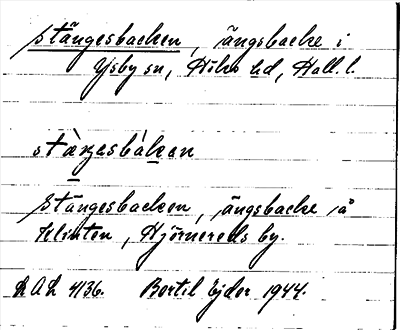 Stängesbacken, ängsbacke i
Ysby sn, Höks hd, Hall. l.
stàŋesbákan
Stängesbacken, ängsbacke å
Klinten, Hjörnereds by.
LAL 4136. Bertil Ejder 1944.